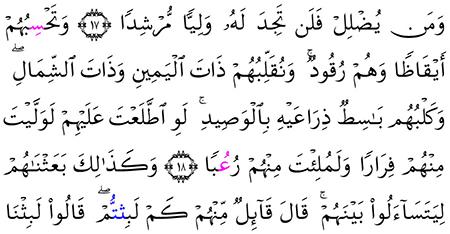 وَمَن يُضْلِلْ فَلَن تَجِدَ لَهُۥ وَلِيًّا مُّرْشِدًا ﴿١٧﴾ وَتَحْسِبُهُمْ
أَيْقَاظًا وَهُمْ رُقُودٌ ۚ وَنُقَلِّبُهُمْ ذَاتَ الْيَمِينِ وَذَاتَ الشِّمَالِ ۖ
وَكَلْبُهُم بَاسِطٌ ذِرَاعَيْهِ بِالْوَصِيدِ ۚ لَوِ اطَّلَعْتَ عَلَيْهِمْ لَوَلَّيْتَ
مِنْهُمْ فِرَارًا وَلَمُلِئْتَ مِنْهُمْ رُعُبًا ﴿١٨﴾ وَكَذَٰلِكَ بَعَثْنَاهُمْ
لِيَتَسَآءَلُواْ بَيْنَهُمْ ۚ قَالَ قَآئِلٌ مِّنْهُمْ كَمْ لَبِثتُّمْ ۖ قَالُواْ لَبِثْنَا